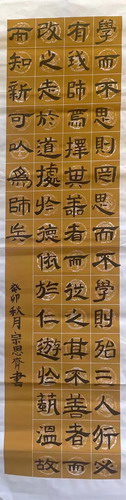 學而不思則罔思而不學則殆三人行必
有我師焉擇其善者而從之其不善者而
改之志於道據於德依於仁遊於藝溫故
而知新可以為師矣
癸卯秋月宗思齊書